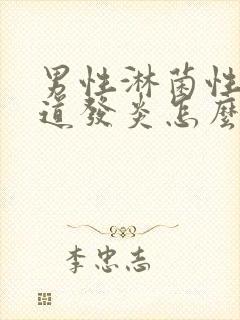 男性淋菌性
道發炎怎麼
李忠志